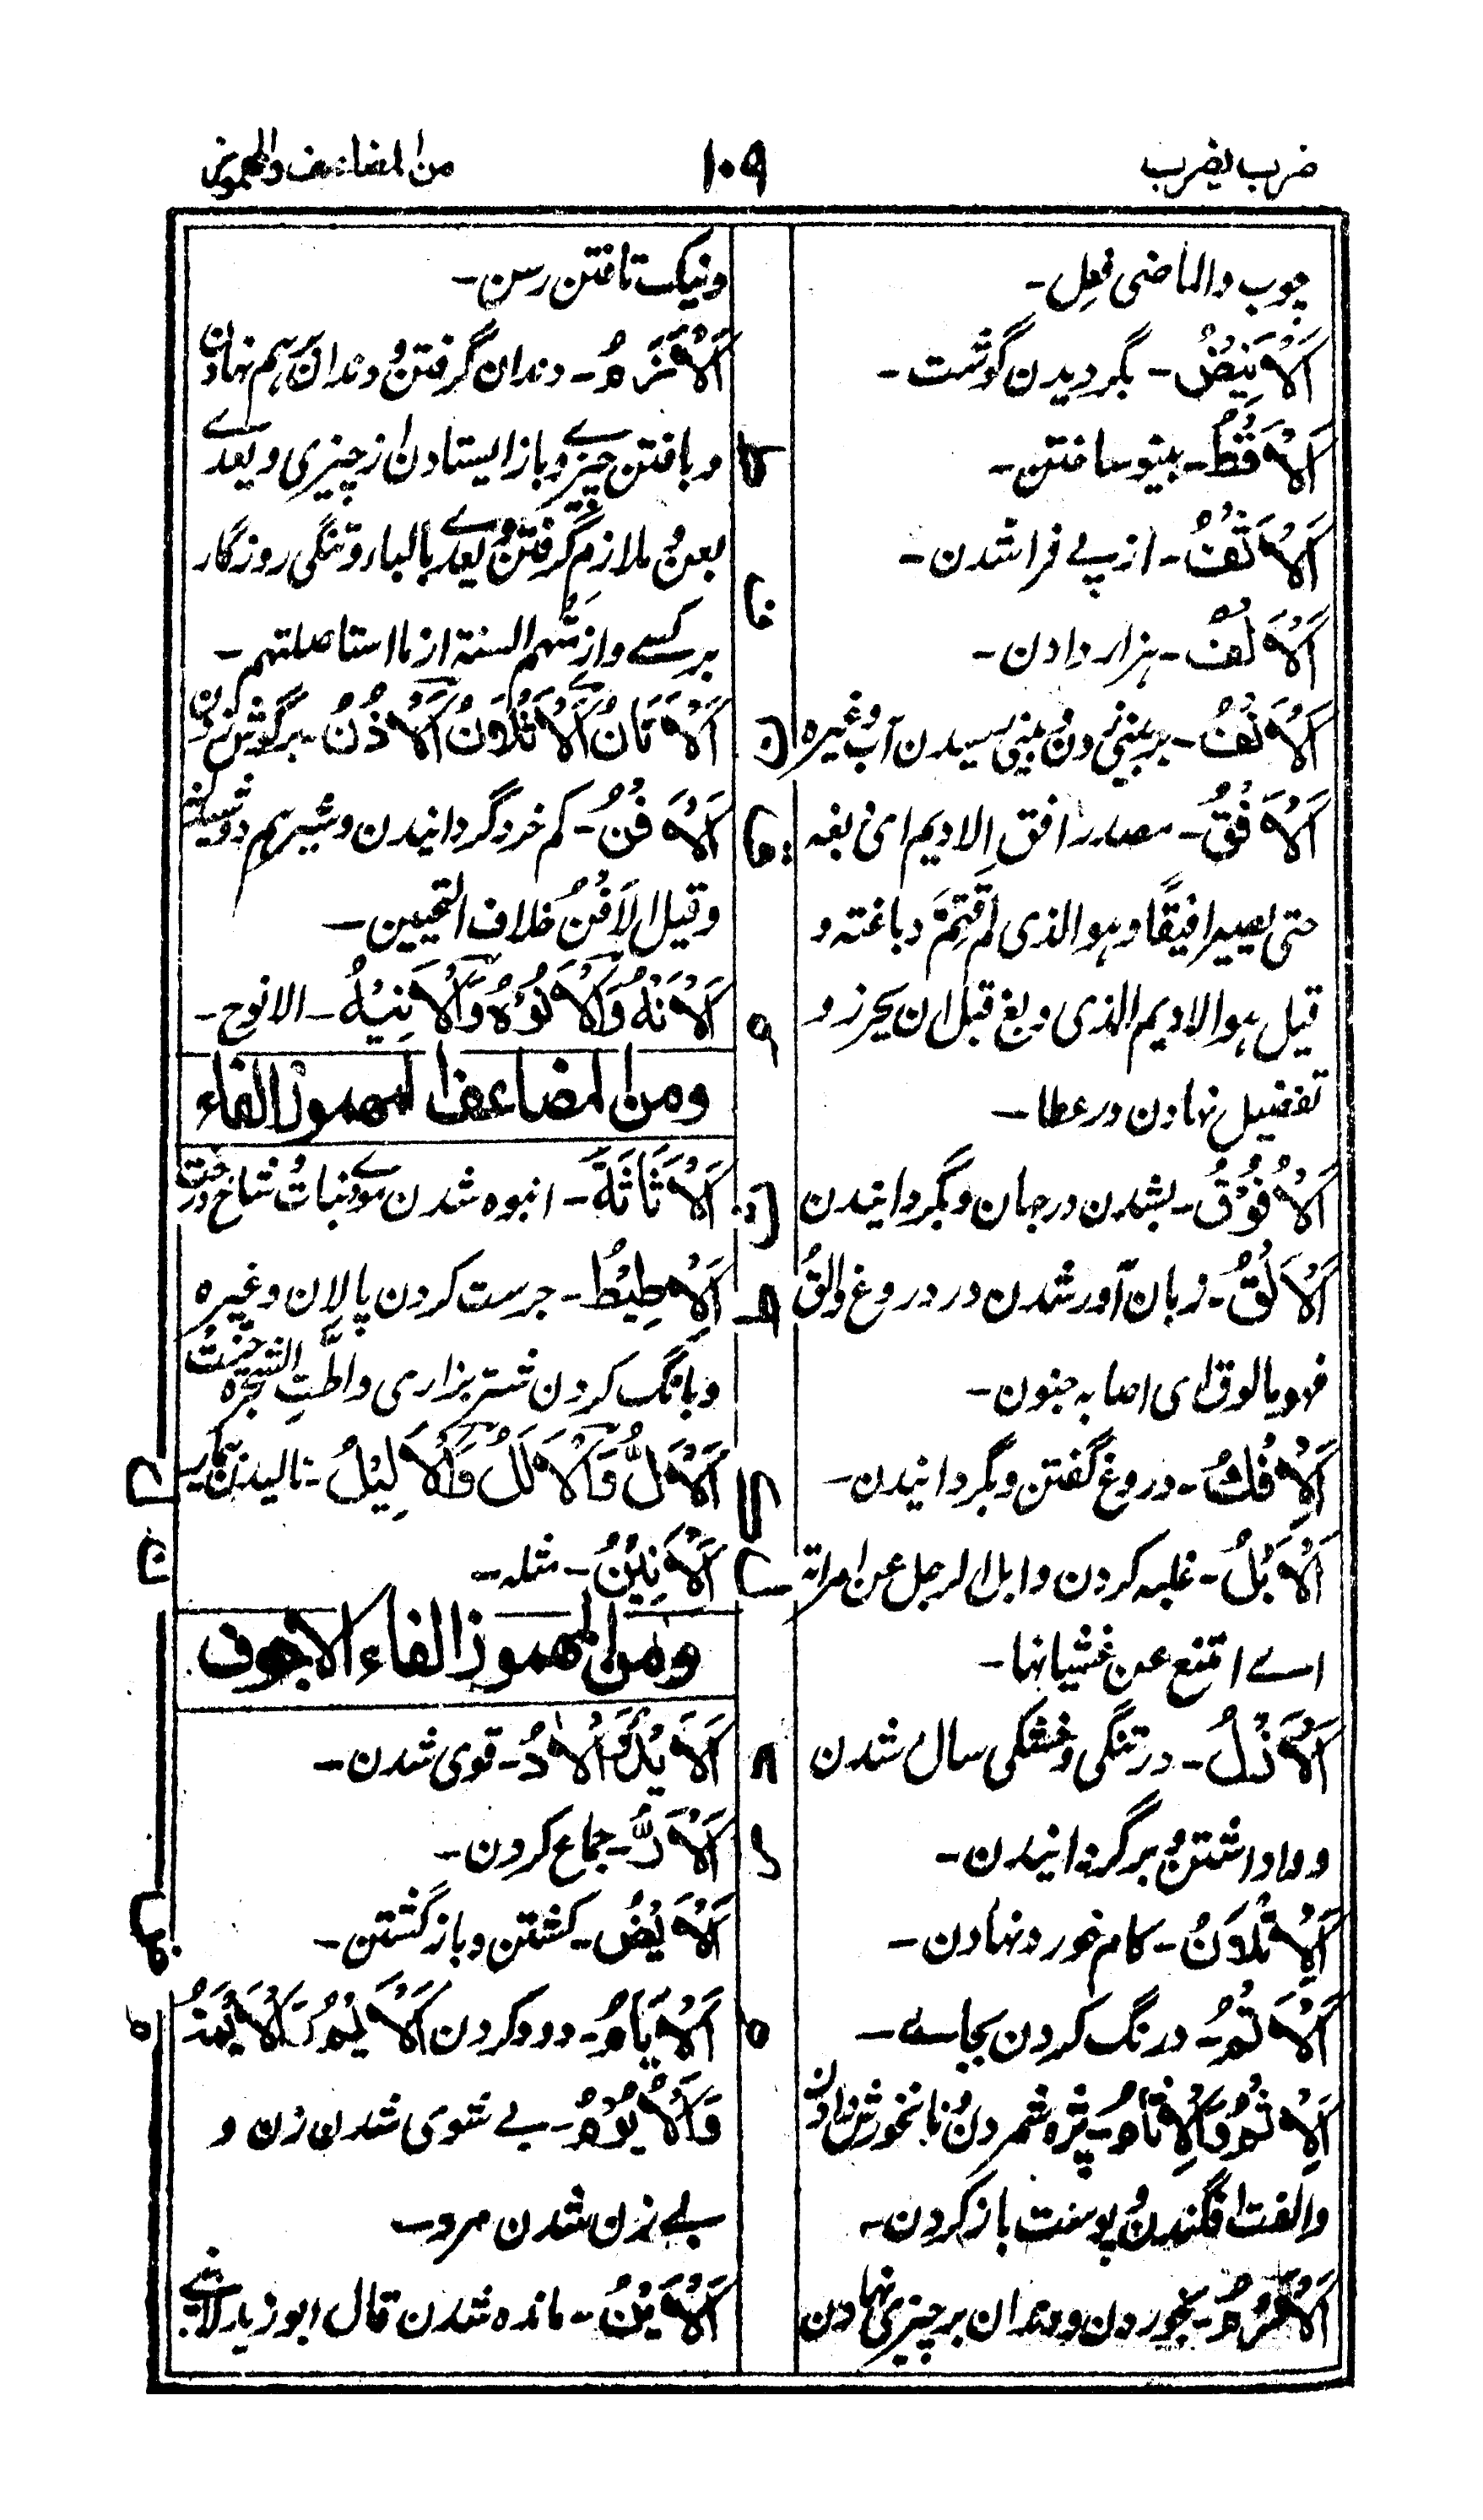 ضرب یضرب
۱۰۹
من المضاعف والمهموز
چوب والماضی فعِل۔
اَلْاَنِیْضُ۔ بگردیدن گوشت۔
اَلْاَقْطُ۔ پینو ساختن۔
اَلْاَثْفُ۔ از پے فرا شدن۔
اَلْاَلْفُ۔ ہزار دادن۔
اَلْاَنْفُ۔ بر بینی زدن و ببینی رسیدن آب وغیرہ
اَلْاَفْقُ۔ مصدر افق الادیم ای دبغہ
حتی یصیر افیقًا وہو الذی لم تتِمَّ دباغتہ و
قیل ہو الادیم الذی دبغ قبل ان یخرز و
تفضیل نہادن در عطا۔
اَلْاُفُوْقُ۔ بشدن در جہان و بگردانیدن
اَلْاَلْقُ۔ زبان آور شدن در دروغ والقُ
فہو مالوق ای اصابہ جنون۔
اَلْاِفْكُ۔ دروغ گفتن و بگردانیدن۔
اَلْاَبْلُ۔ غلبہ کردن و ابل الرجل عن امراتہ
اے امتنع عن غشیانہا۔
اَلْاَزْلُ۔ در تنگی و خشکی سال شدن
و واداشتن و برگردانیدن۔
اَلْاَتَلَانُ۔ گام خورد نہادن۔
اَلْاَتْمُ۔ درنگ کردن بجاے۔
اَلْاِثْمُ وَالْاَثَامُ۔ بزہ شمردن و نانخورش دادن
والفت افگندن و پوست باز کردن۔
اَلْاَرْمُ۔ بخوردن و دندان بر چیزی نہادن
و نیک تافتن رسن۔
اَلْاَزْمُ۔ دندان گرفتن و دندان برہم نہادن
و بافتن چیزے و باز ایستادن از چیزی و یعدے
بعن و ملازم گرفتن و یعدے بالباء و تنگی روزگار
بر کسے وازمتہم السنۃ ازما استاصلتہم۔
اَلْاَتَانُ اَلْاَتَلَانُ اَلْاَذْنُ۔ بر گوش زدن
اَلْاَفْنُ۔ کم خرد گردانیدن و شیر ہمہ دوشیدن
وقیل الاَفْنُ خلاف التحیین۔
اَلْاَنْهُ وَالْاُنُوْهُ وَالْاَنِیْهُ۔ الانوح۔
ومن المضاعف المهموز الفاء
اَلْاَثَاثَةُ۔ انبوہ شدن موے و نبات و شاخ درخت
اَلْاَطِیْطُ۔ جرست کردن پالان وغیرہ
و بانگ کردن شتر بزاری واطّتِ الشجرۃ حنّت
اَلْاَلُّ وَالْاَلَلُ وَالْاَلِیْلُ۔ نالیدن بیمار
اَلْاَنِیْنُ۔ مثلہ۔
ومن المهموز الفاء الاجوف
اَلْاَیْدُ وَالْاٰدُ۔ قوی شدن۔
اَلْاَرُّ۔ جماع کردن۔
اَلْاَیْضُ۔ گشتن و باز گشتن۔
اَلْاِیَامُ۔ دود کردن اَلْاَیْمُ وَالْاَیْمَةُ
وَالْاُیُوْمُ۔ بے شوی شدن زن و
بے زن شدن مرد۔
اَلْاَیْنُ۔ ماندہ شدن قال ابو زید لا یبنے